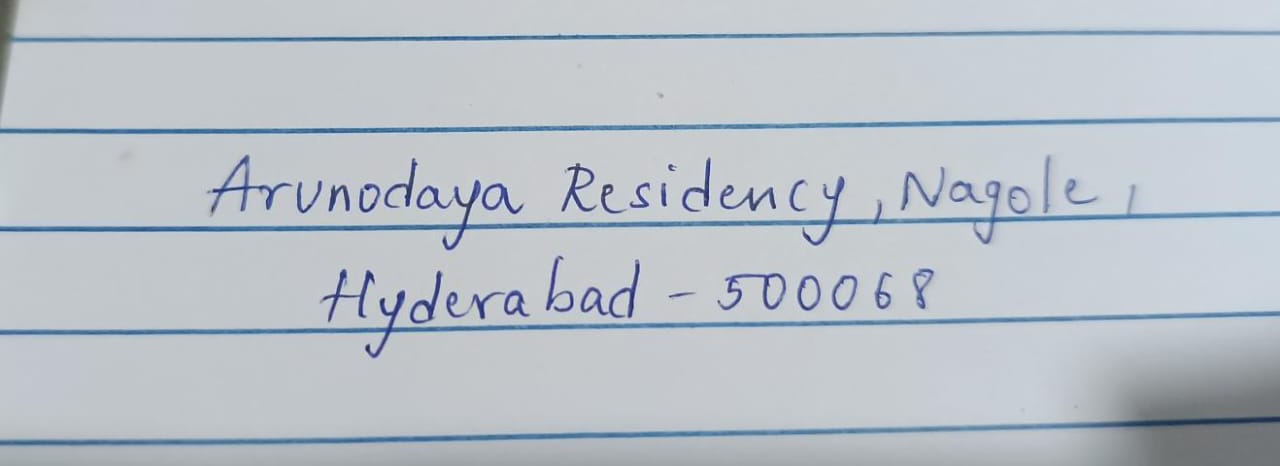 Arunodaya Residency, Nagole,
Hyderabad - 500068